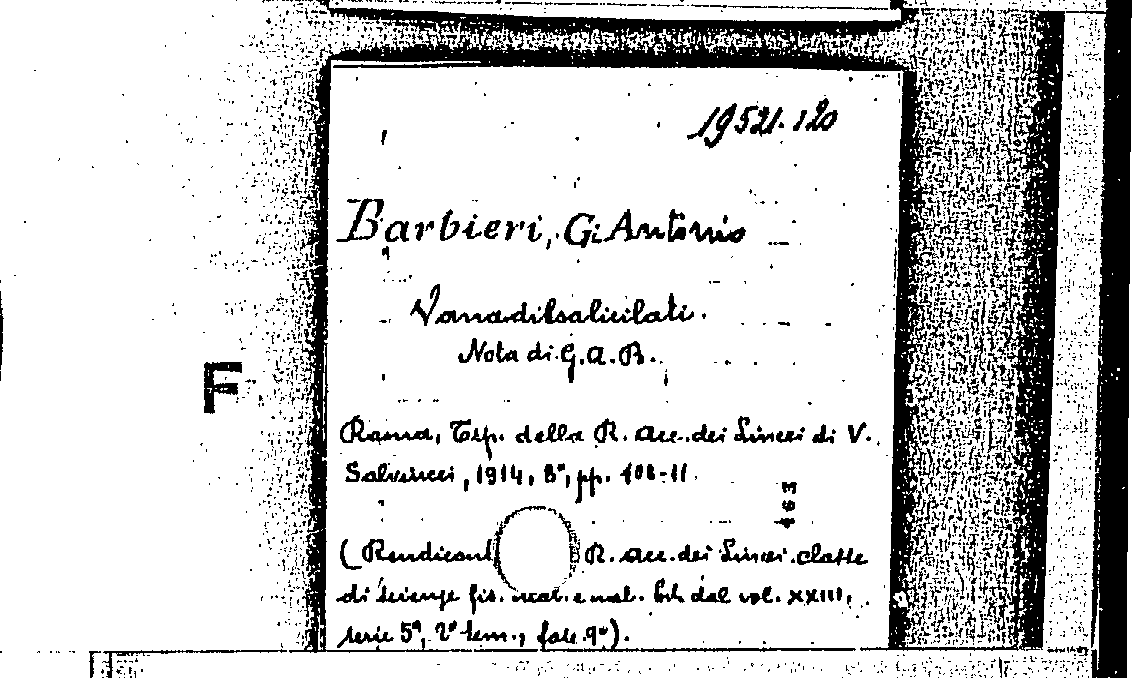 19521.120
Barbieri, G. Antonio
Vanaditsalicilati.
Nota di G. A. B.
F
Roma, Tip. della R. Acc. dei Lincei di V.
Salviucci, 1914, 8°, pp. 108-11
(Rendicont R. Acc. dei Lincei. classe
di scienze fis. mat. e nat. Estr. dal vol. XXIII,
serie 5ª, 2° sem., fasc. 9°).